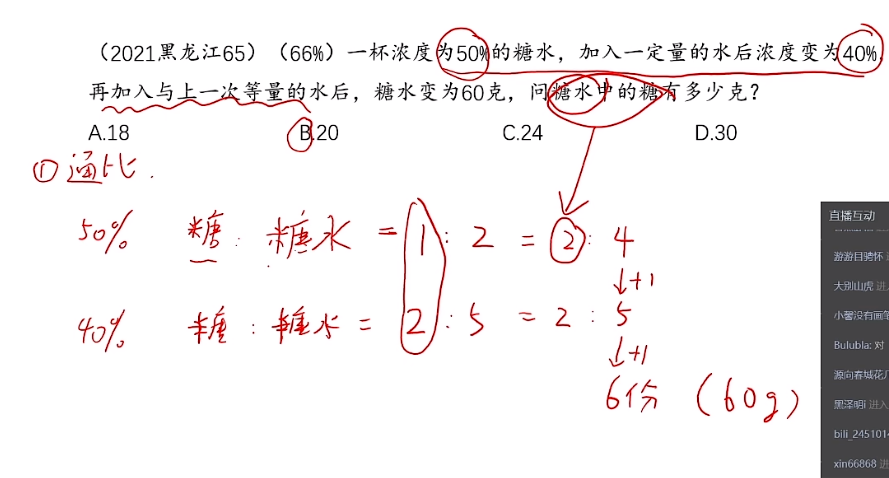 （2021黑龙江65）（66%）一杯浓度为50%的糖水，加入一定量的水后浓度变为40%，
再加入与上一次等量的水后，糖水变为60克，问糖水中的糖有多少克？
A.18 B.20 C.24 D.30
①通比.
50% 糖:糖水=1:2=2:4
↓+1
40% 糖:糖水=2:5=2:5
↓+1
6份（60g）
直播互动
游游目骋怀
大别山虎 进
小馨没有画笔
Bulubla: 对
源向春城花
黑泽明i 进入
bili_245101
xin66868 进